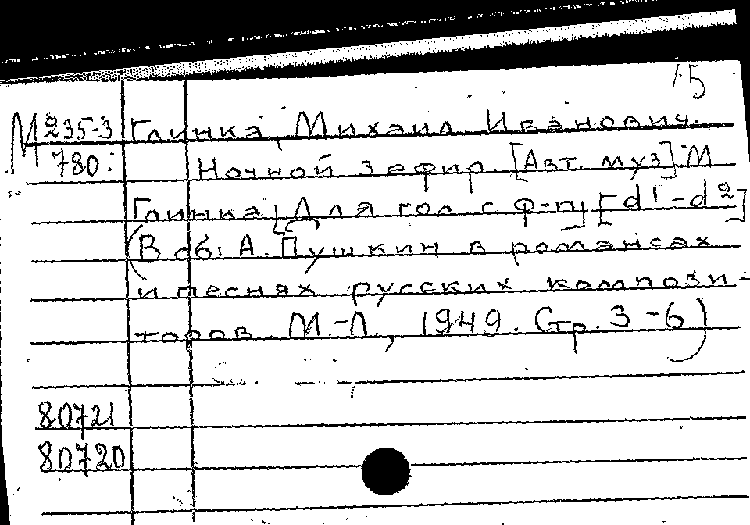 15
М 235-3 Глинка, Михаил Иванович.
780: Ночной зефир [Авт. муз]: М
Глинка; Для гол с ф-п; [d¹-d²]
(В сб: А. Пушкин в романсах
и песнях русских компози-
торов М-Л, 1949. Стр. 3-6)
80721
80720